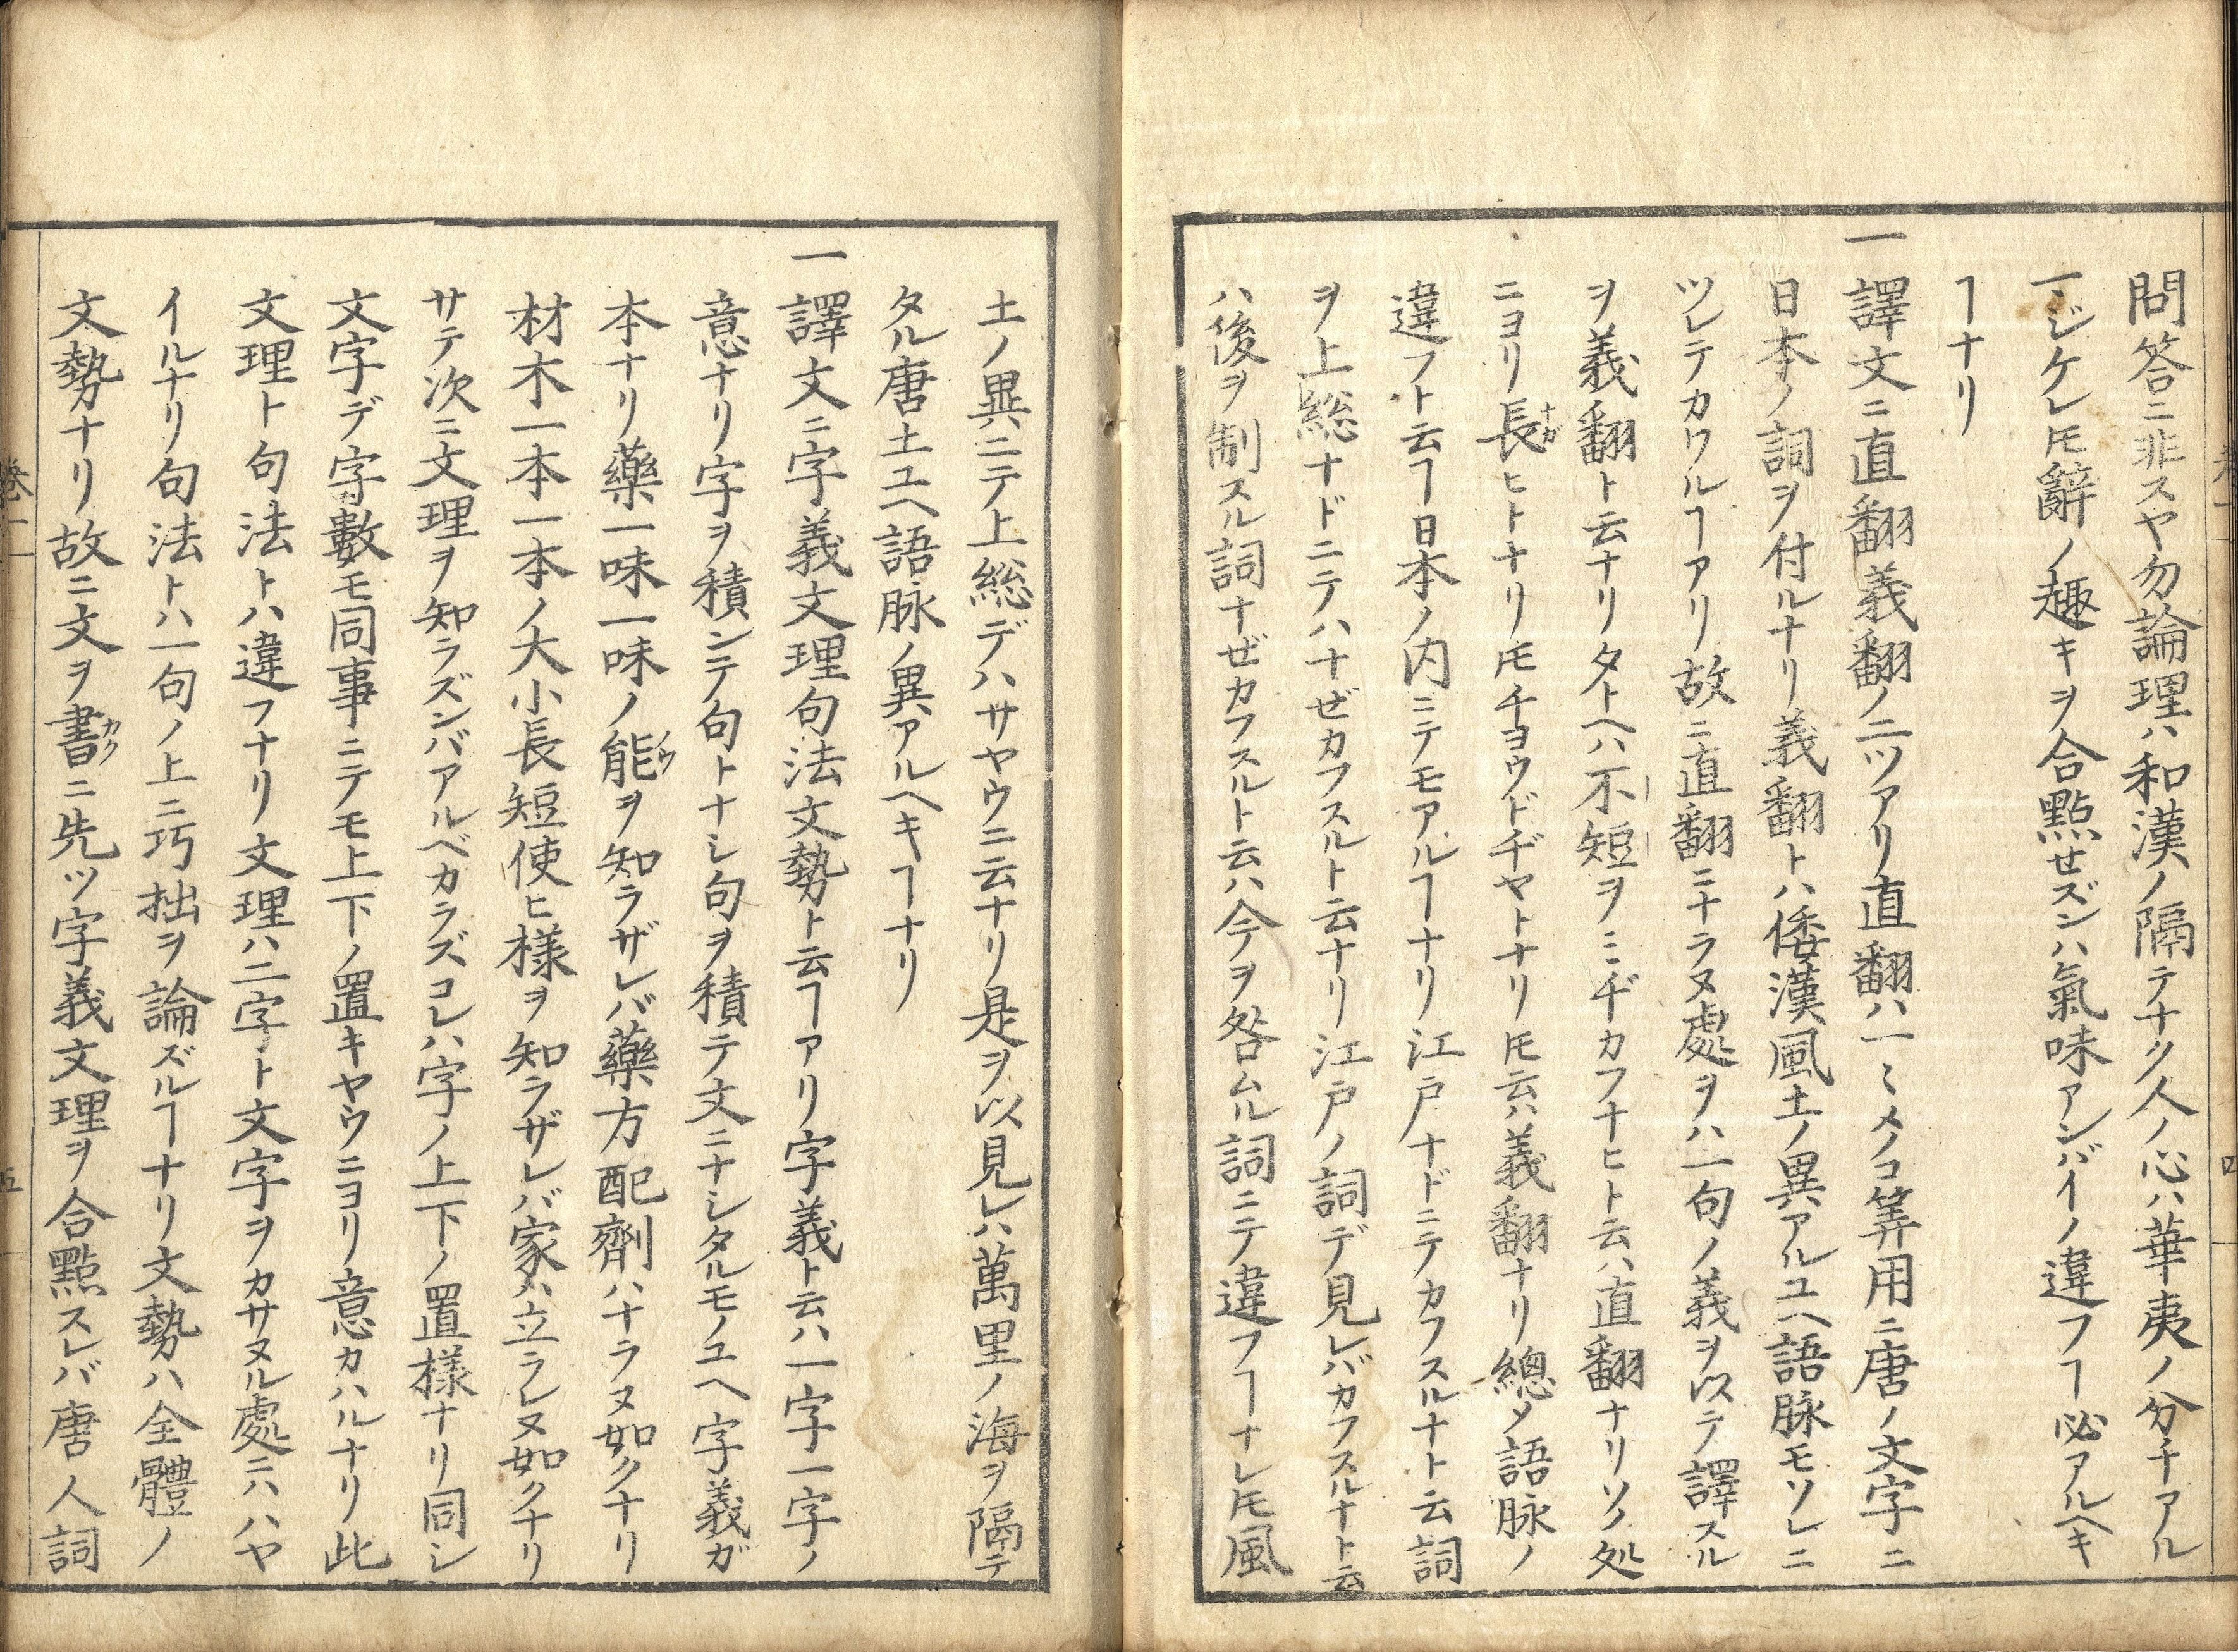 問答ニ非スヤ勿論理ハ和漢ノ隔テナク人ノ心ハ華夷ノ分チアル
ヿジケレ𪜈辭ノ趣キヲ合點せズンハ氣味アンバイノ違フヿ必アルヘキ
ヿナリ
一譯文ニ直翻義翻ノ二ツアリ直翻ハ一〻メノコ筭用ニ唐ノ文字ニ
日本ノ詞ヲ付ルナリ義翻トハ倭漢風土ノ異アルユヘ語脉モソレニ
ツレテカワルヿアリ故ニ直翻ニナラヌ處ヲハ一句ノ義ヲ以テ譯スル
ヲ義翻ト云ナリタトヘハ不短ヲミヂカフナヒト云ハ直翻ナリソノ処
ニヨリ長ナガヒトナリ𪜈チヨウドヂヤトナリ𪜈云ハ義翻ナリ總〆語脉ノ
違フト云ヿ日本ノ内ニテモアルヿナリ江戸ナドニテカフスルナト云詞
ヲ上総ナドニテハナぜカフスルト云ナリ江戸ノ詞デ見レバカフスルナト云
ハ後ヲ制スル詞ナぜカフスルト云ハ今ヲ咎ムル詞ニテ違フヿナレ𪜈風
土ノ異ニテ上総デハサヤウニ云ナリ是ヲ以見レハ萬里ノ海ヲ隔テ
タル唐土ユヘ語脉ノ異アルヘキヿナリ
一譯文ニ字義文理句法文勢ト云ヿアリ字義ト云ハ一字一字ノ
意ナリ字ヲ積ンテ句トナシ句ヲ積テ文ニナシタルモノユヘ字義ガ
本ナリ藥一味一味ノ能ノウヲ知ラザレバ藥方配劑ハナラヌ如クナリ
材木一本一本ノ大小長短使ヒ樣ヲ知ラザレバ家ハ立ラレヌ如クナリ
サテ次ニ文理ヲ知ラズンバアルベカラズコレハ字ノ上下ノ置樣ナリ同シ
文字デ字數モ同事ニテモ上下ノ置キヤウニヨリ意カハルナリ此
文理ト句法トハ違フナリ文理ハ二字ト文字ヲカサヌル處ニハハヤ
イルナリ句法トハ一句ノ上ニ巧拙ヲ論ズルヿナリ文勢ハ全體ノ
文勢ナリ故ニ文ヲ書カクニ先ツ字義文理ヲ合點スレバ唐人詞
卷一
五
四